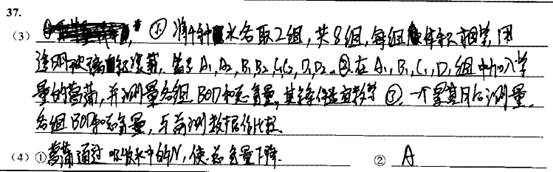 37.
(3) ① 将4种水各取2组，共8组，每组体积相等，用
透明玻璃缸装，盖子 A₁, A₂, B₁ B₂ C₁ C₂, D₁, D₂. ②在 A₁, B₁, C₁, D₁ 组中加入等
量的菖蒲，并测量各组 BOD和总氮量，其条件适宜 ③. 一个星期后测量
各组BOD和总氮量，与前测数据作比较
(4) ①菖蒲通过吸收水中的N，使总氮量下降. ② A